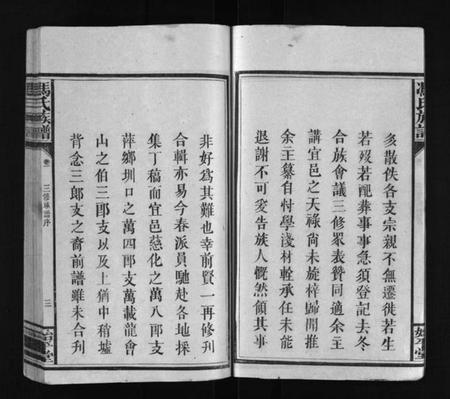 馮氏族譜
多散佚各支宗親不無遷徙若生
若歿若配葬事事急須登記去冬
合族會議三修眾表贊同適余主
講宜邑之天祿尚未旋梓歸開推
余主纂自忖學淺材輇承任未能
退謝不可爰告族人慨然領其事
始平堂
非好為其難也幸前賢一再修刋
合輯亦易今春派員馳赴各地採
集丁稿而宜邑慈化之萬八郎支
萍鄉圳口之萬四郎支萬載龍會
山之伯三郎支以及上猶中稍墟
背念三郎支之裔前譜雖未合刋
馮氏族譜
卷 三修族譜序
三
始平堂